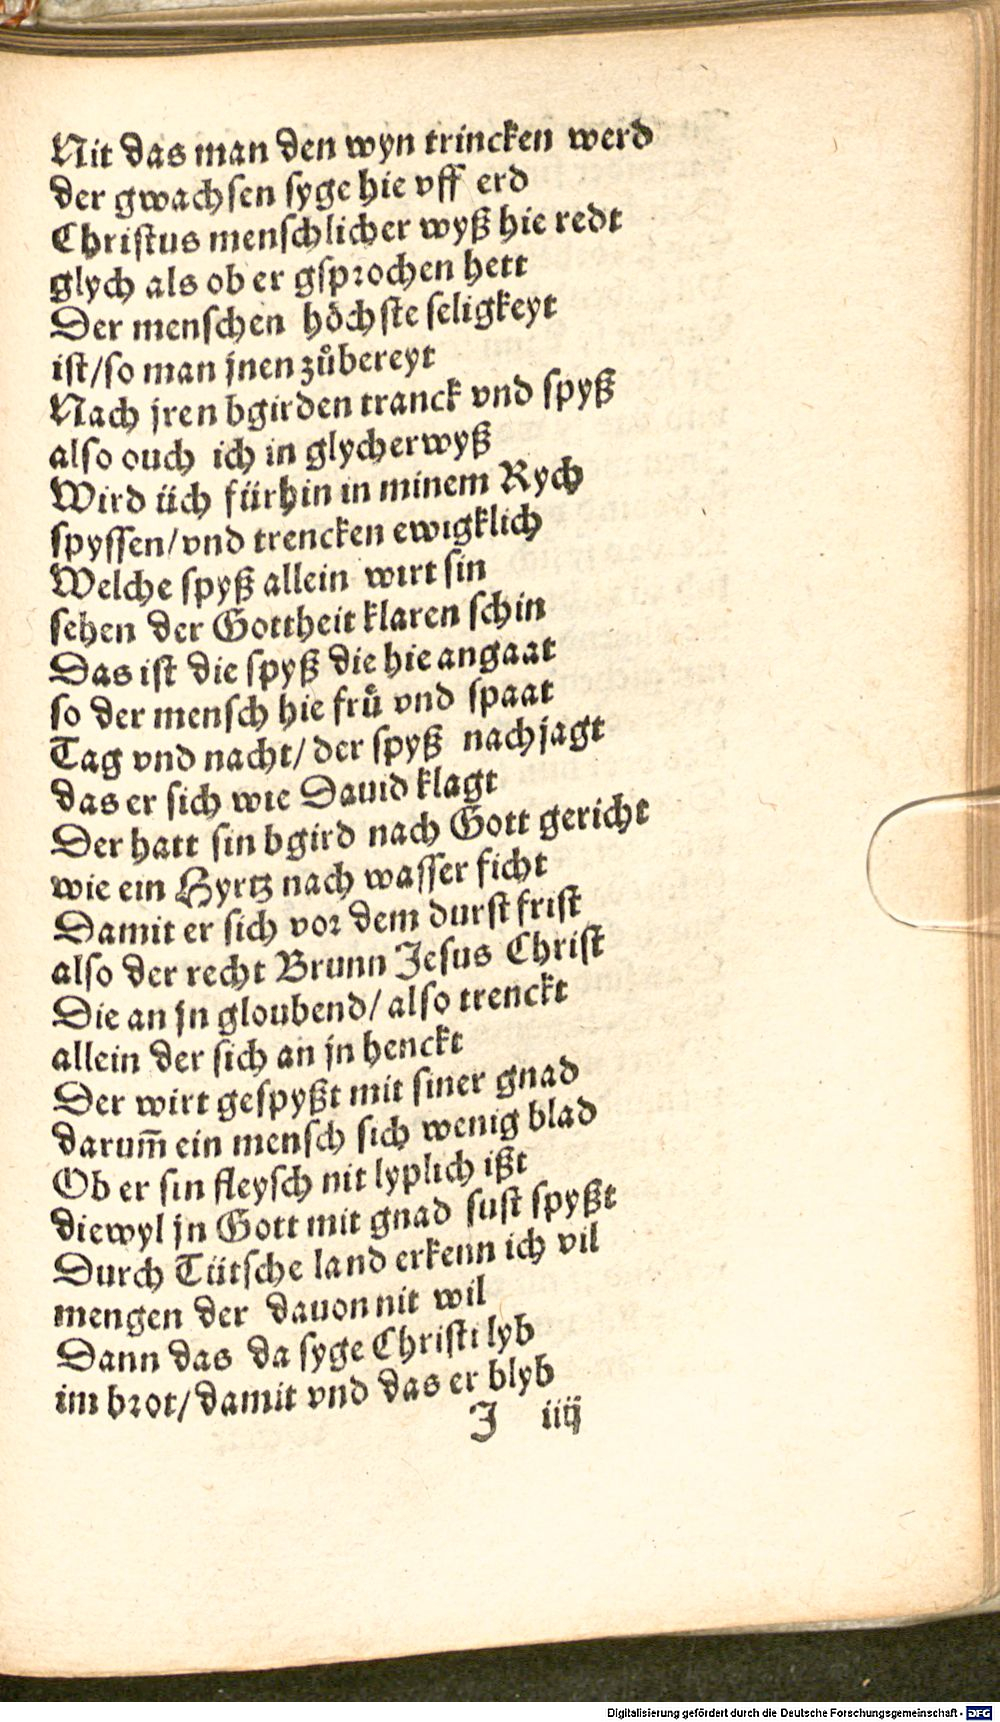 Nit das man den wyn trincken werd
der gwachsen syge hie vff erd
Christus menschlicher wyß hie redt
glych als ob er gsprochen hett
Der menschen höchste seligkeyt
ist/so man jnen zůbereyt
Nach jren bgirden tranck vnd spyß
also ouch ich in glycherwyß
Wird üch fürhin in minem Rych
spyssen/vnd trencken ewigklich
Welche spyß allein wirt sin
sehen der Gottheit klaren schin
Das ist die spyß die hie angaat
so der mensch hie frů vnd spaat
Tag vnd nacht/ der spyß nachjagt
das er sich wie Dauid klagt
Der hatt sin bgird nach Gott gericht
wie ein Hyrtz nach wasser ficht
Damit er sich vor dem durst frist
also der recht Brunn Jesus Christ
Die an jn gloubend/ also trenckt
allein der sich an jn henckt
Der wirt gespyßt mit siner gnad
darum̄ ein mensch sich wenig blad
Ob er sin fleysch nit lyplich ißt
diewyl jn Gott mit gnad sust spyßt
Durch Tütsche land erkenn ich vil
mengen der dauon nit wil
Dann das da syge Christi lyb
im brot/damit vnd das er blyb
J iiij
Digitalisierung gefördert durch die Deutsche Forschungsgemeinschaft - DFG